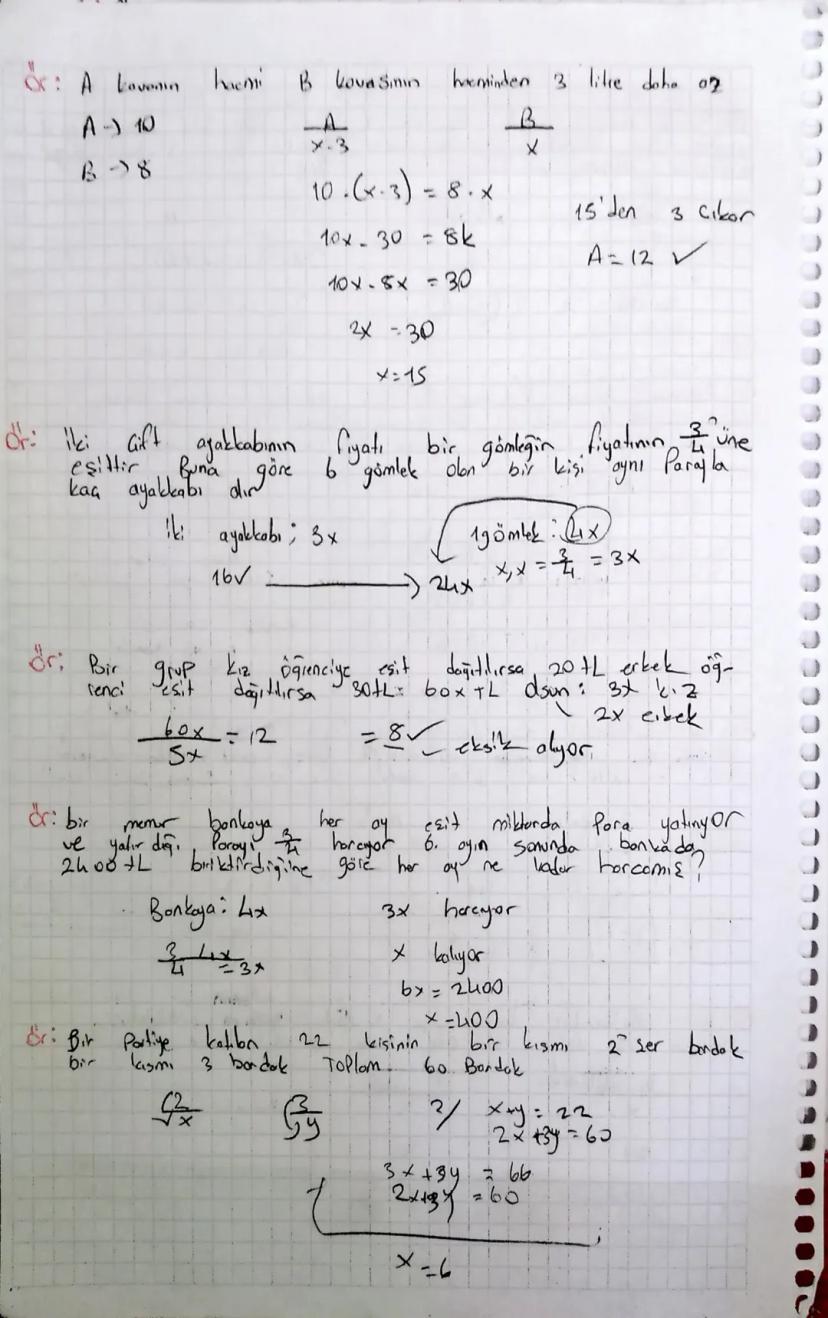 Ör: A kovanın hacmi B kovasının hacminden 3 litre daha az
A → 10
A
x-3
B
x
B → 8
10 . (x-3) = 8 . x
15'den 3 Çıkar
10x - 30 = 8x
A = 12 ✓
10x - 8x = 30
2x = 30
x = 15
Ör: İki çift ayakkabının fiyatı bir gömleğin fiyatının 3/4 'üne
eşittir Buna göre 6 gömlek alan bir kişi aynı Parayla
kaç ayakkabı alır
İki ayakkabı ; 3x
1 gömlek : 4x
x, x = 3/4 = 3x
16 ✓ → 24x
Ör: Bir grup kız öğrenciye eşit dağıtılırsa 20 tL erkek öğ-
renci eşit dağıtılırsa 30 tL : 60x TL olsun : 3x kız
2x erkek
60x / 5x = 12 = 8 ✓ eksik alıyor
Ör: bir memur bankaya her ay eşit miktarda Para yatırıyor
ve yatırdığı Parayı 3/4 harcıyor 6. ayın sonunda bankada
2400 tL biriktirdiğine göre her ay ne kadar harcamış?
Bankaya : 4x 3x harcıyor
3/4 4x = 3x
x kalıyor
6x = 2400
x = 400
Ör: Bir Partiye katılan 22 kişinin bir kısmı 2 şer bardak
bir kısmı 3 bardak TOPlam 60 Bardak
2
x
3
y
3/ x+y = 22
2x + 3y = 60
3x + 3y = 66
2x + 3y = 60
x = 6